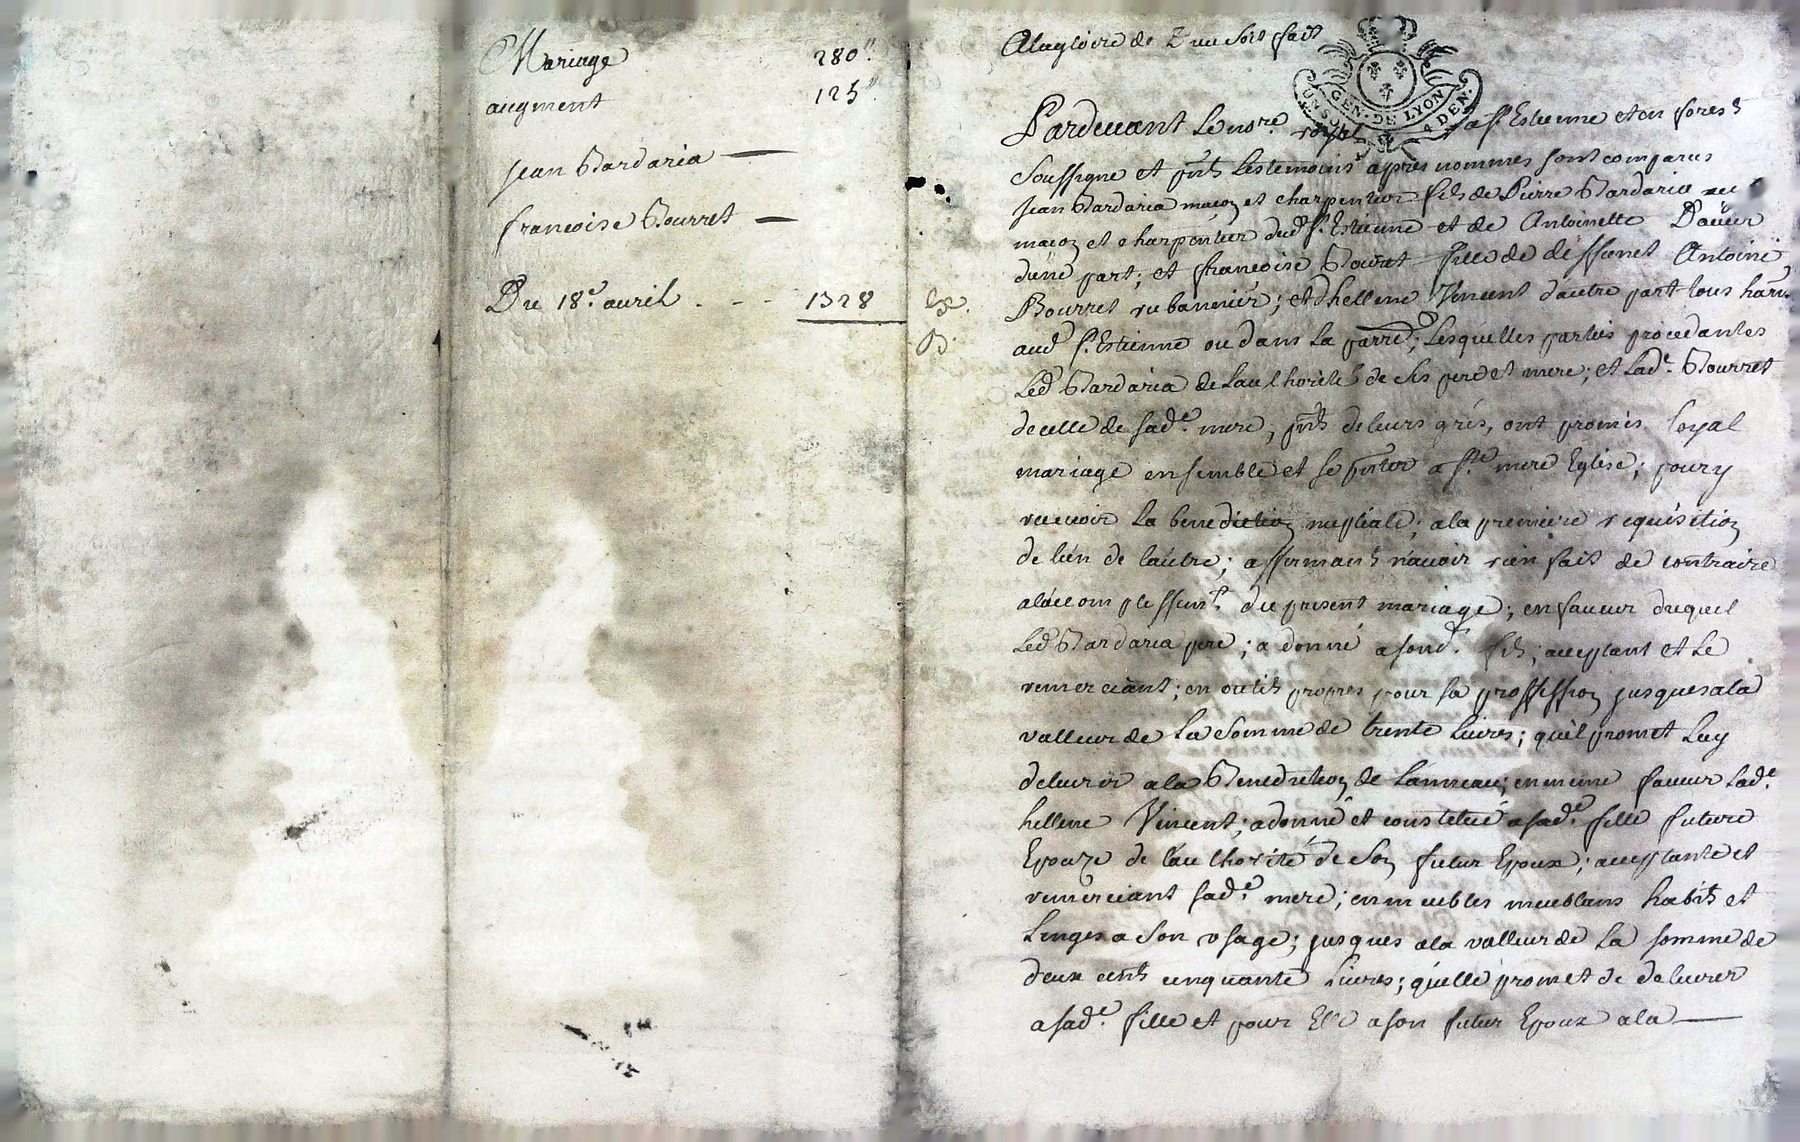 Mariage 280"
augment 125"
Jean Bardaria —
francoise Bourret —
Du 18e. auril . - - 1328
Alagloire de Dieu soit fait
GEN. DE LYON
UN SOL 4 DEN.
Parduant Le nore. royal a st. Estienne et en forest
Soussigne et pnts Lestemoins apres nommes sont comparus
Jean Bardaria macon et charpentier fils de Pierre Bardaria
macon et charpentier dud st. Estienne et de Antoinette
dune part; et francoise Bourat fille de deffunct Antoine
Bourret rubannier; et dhellene Vincent dautre part tous
aud st. Estienne ou dans La parre; Lesquelles parties procedantes
Led Bardaria de Lauthorité de ses pere et mere; et Lade. Bourret
decelle de sade. mere, pnts de leurs grés, ont promis loyal
mariage ensemble et se pnter a ste mere Eglise; pour y
receuoir La benediction nuptiale; ala premiere requisition
de lun de lautre; affirmants nauoir rien fait de contraire
alaccomplissemt. du present mariage; en faueur duquel
Led Bardaria pere; a donné a sond. fils; acceptant et Le
remerciant; en outils propres pour sa proffession jusques ala
valleur de La somme de trente Liures; quil promet Luy
deliurer ala Benediction de Lanneau; en meme faueur Lade.
hellene Vincent; a donné et constitué a sade. fille future
Epouze de lauthorité de son futur Epoux; acceptante et
remerciant sade. mere; en meubles meublans habits et
Linges a son usage; jusques ala valleur de La somme de
deux cents cinquante Liures; quelle promet de deliurer
a sade. fille et pour Elle a son futur Epoux ala —